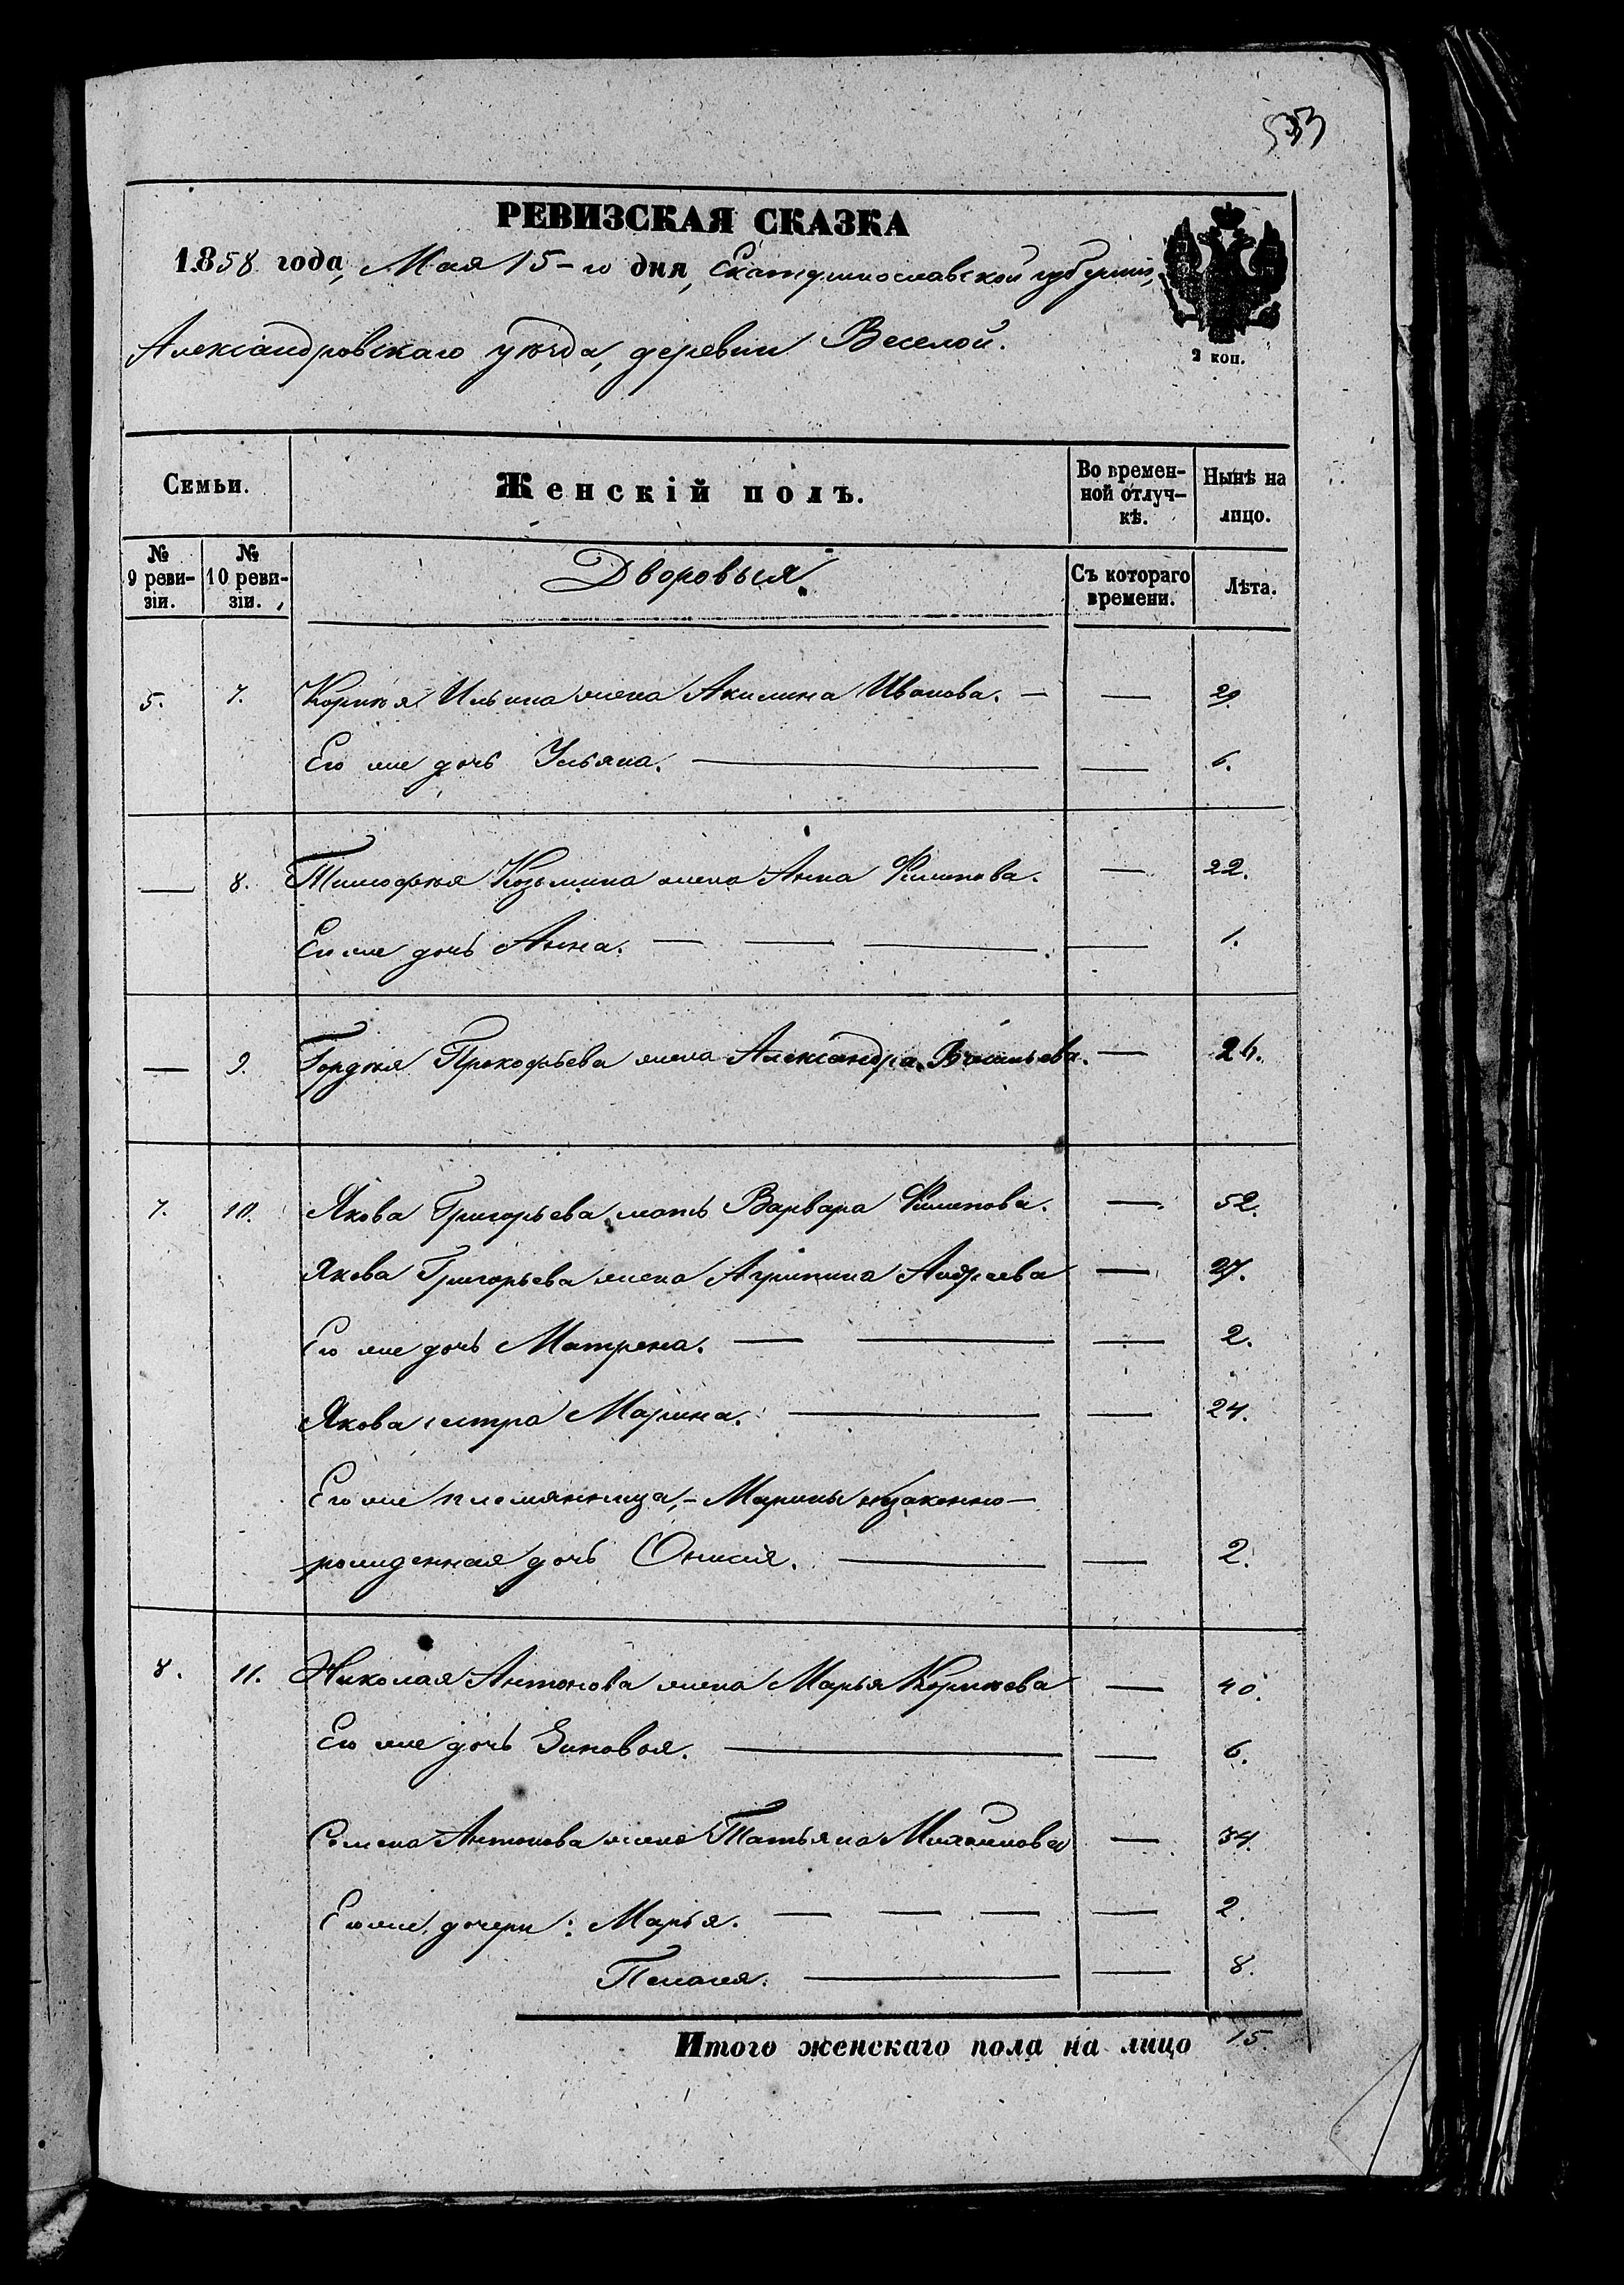 533
РЕВИЗСКАЯ СКАЗКА
1858 года, Мая 15-го дня, Екатеринославской губерніи,
Александровскаго уѣзда, деревни Веселой.
2 коп.
Семьи. Женскій полъ. Во времен-ной отлуч-кѣ. Нынѣ на лицо.
№ 9 реви-зіи. № 10 реви-зіи. Дворовыя. Съ котораго времени. Лѣта.
5. 7. Корнѣя Ильина жена Акилина Иванова. — — 29.
Его же дочь Ульяна. — — 6.
— 8. Тимофѣя Козьмина жена Анна Филипова. — 22.
Его же дочь Анна. — — — — 1.
— 9. Гордѣя Прокофьева жена Александра Васильева. — 26.
7. 10. Якова Григорьева мать Варвара Филипова. — 52.
Якова Григорьева жена Агрипина Андреева — 27.
Его же дочь Матрена. — — — 2.
Якова сестра Марина. — — 24.
Его же племянница, – Марины незаконно–
рожденная дочь Онисія. — — 2.
8. 11. Николая Антонова жена Марья Корнѣева — 40.
Его же дочь Зиновья. — — 6.
Семена Антонова жена Татьяна Михайлова — 34.
Его же дочери: Марья. — — — — 2.
Пелагея. — — 8.
Итого женскаго пола на лицо 15.